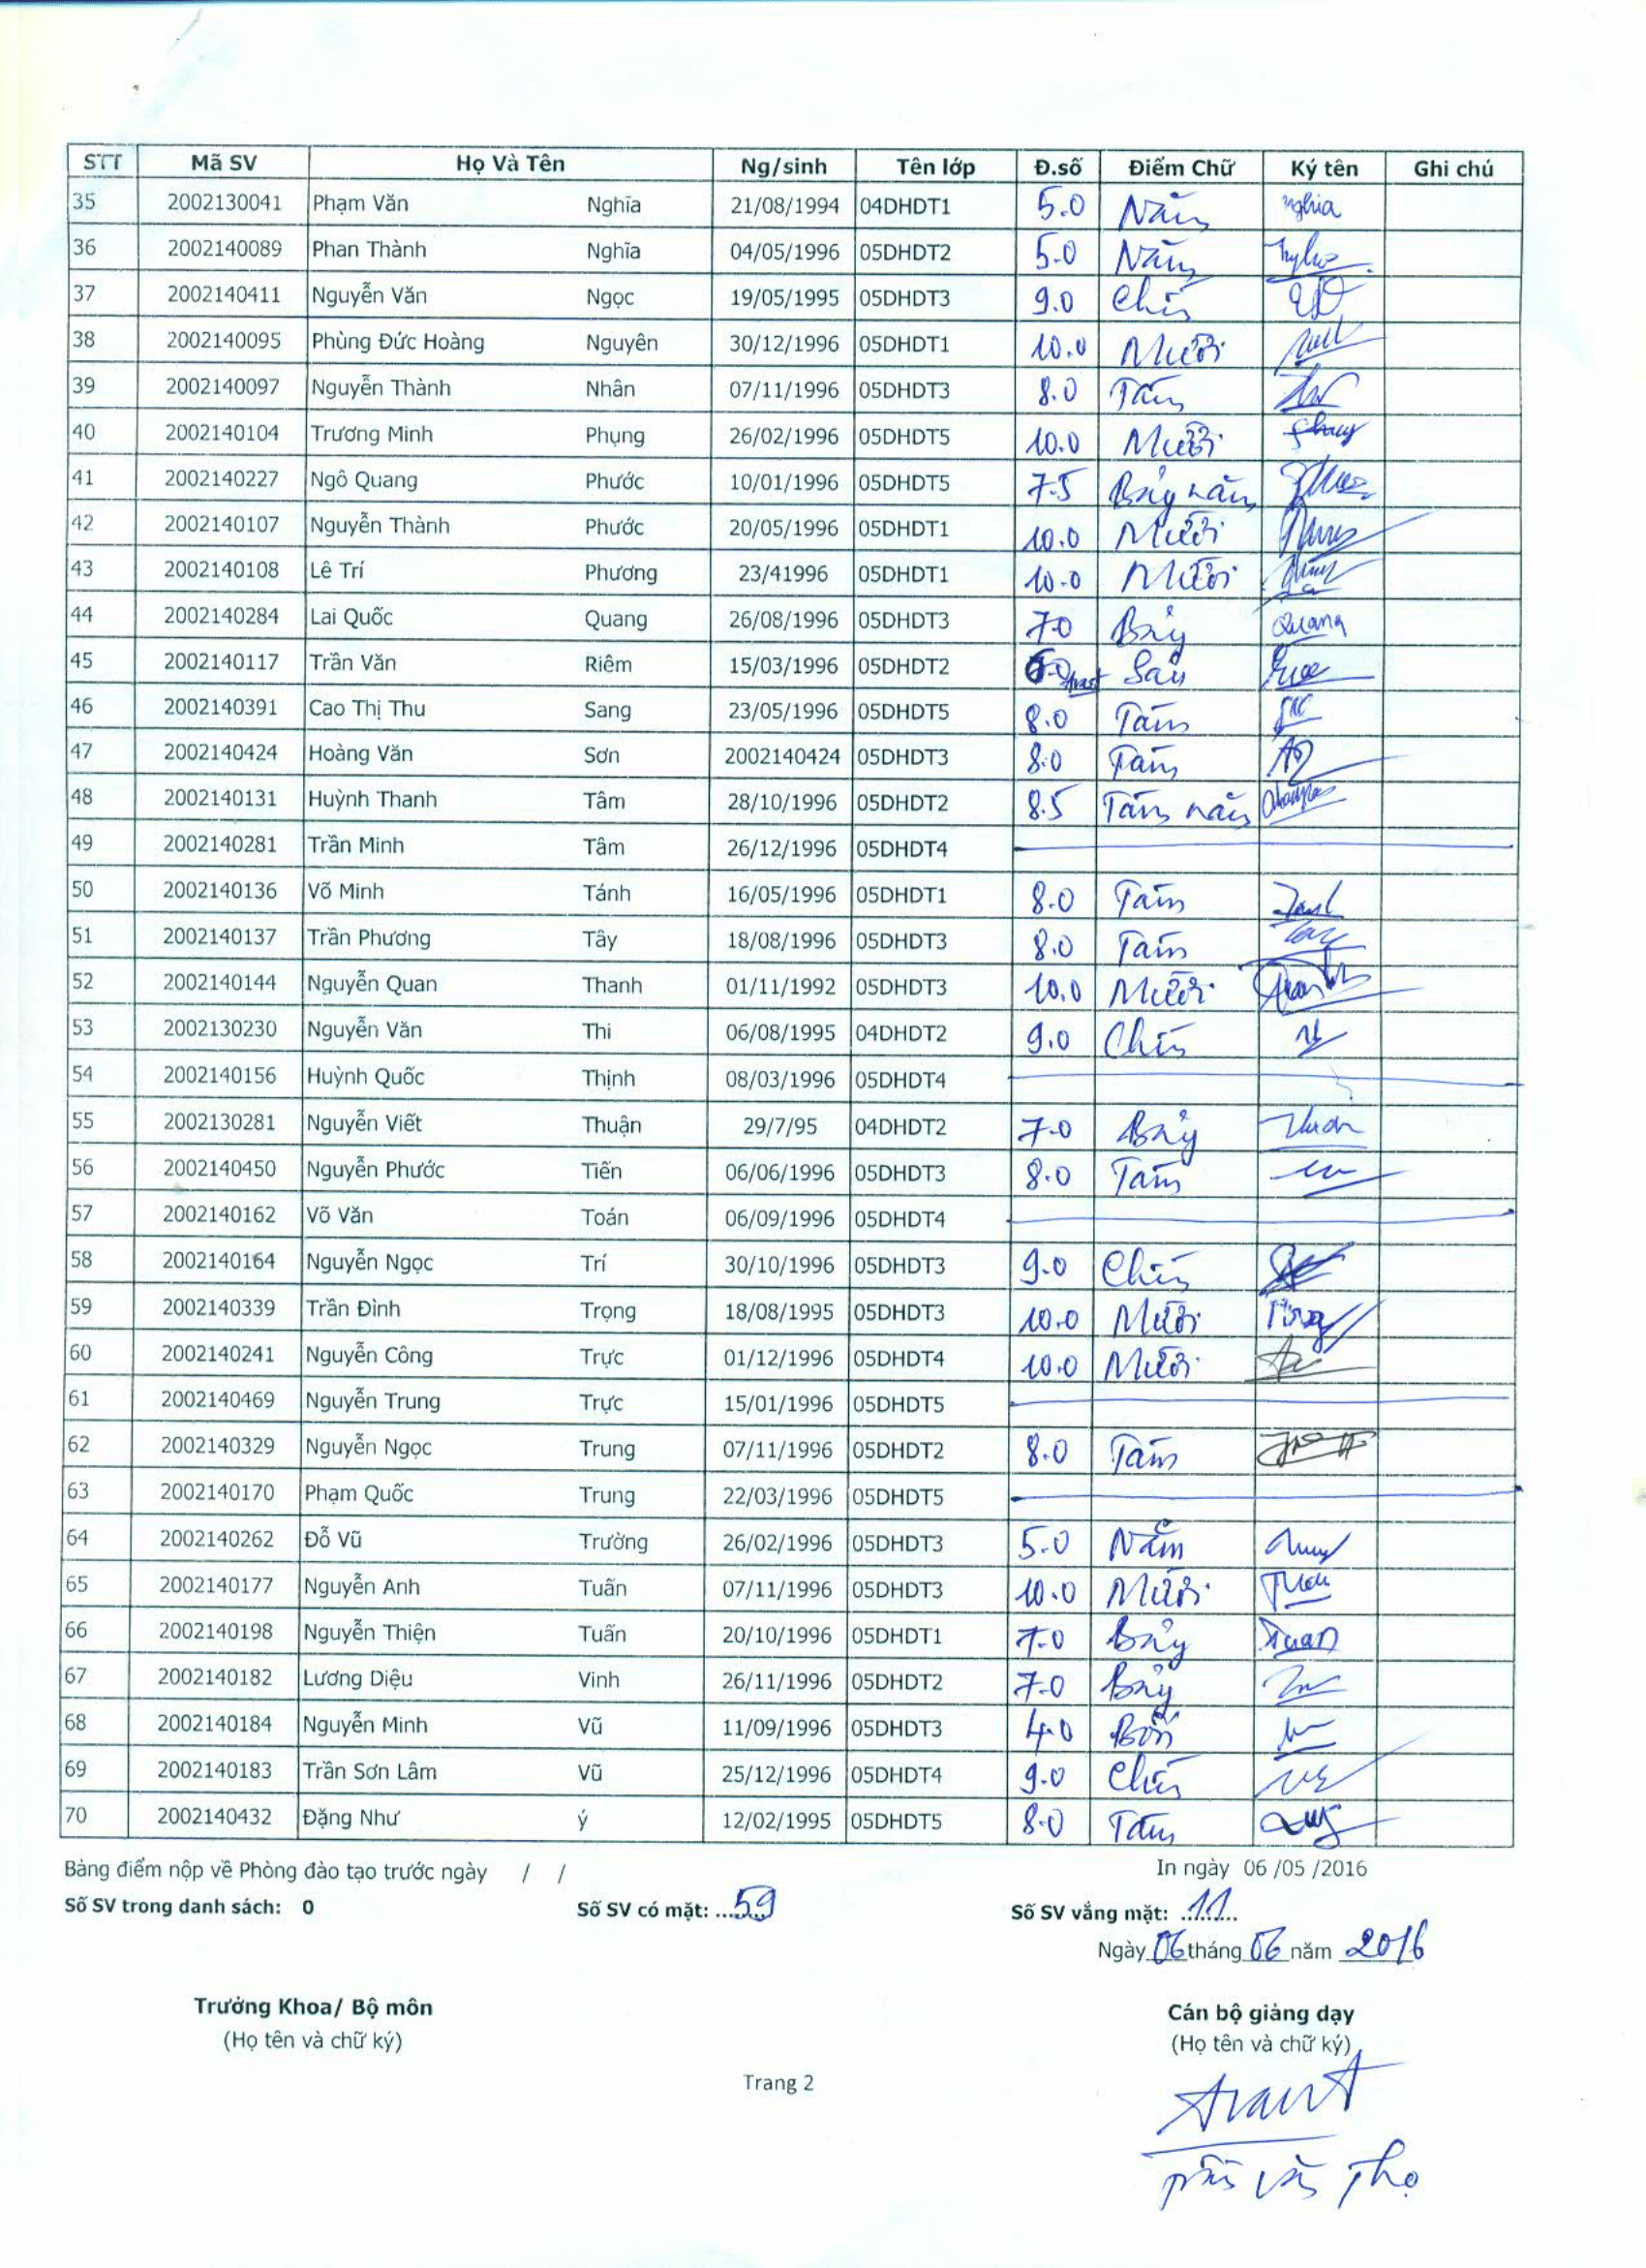 STT Mã SV Họ Và Tên Ng/sinh Tên lớp Đ.số Điểm Chữ Ký tên Ghi chú
35 2002130041 Phạm Văn Nghĩa 21/08/1994 04DHDT1 5.0 Năm Nghia
36 2002140089 Phan Thành Nghĩa 04/05/1996 05DHDT2 5.0 Năm
37 2002140411 Nguyễn Văn Ngọc 19/05/1995 05DHDT3 9.0 Chín
38 2002140095 Phùng Đức Hoàng Nguyên 30/12/1996 05DHDT1 10.0 Mười
39 2002140097 Nguyễn Thành Nhân 07/11/1996 05DHDT3 8.0 Tám
40 2002140104 Trương Minh Phụng 26/02/1996 05DHDT5 10.0 Mười
41 2002140227 Ngô Quang Phước 10/01/1996 05DHDT5 7.5 Bảy năm
42 2002140107 Nguyễn Thành Phước 20/05/1996 05DHDT1 10.0 Mười
43 2002140108 Lê Trí Phương 23/41996 05DHDT1 10.0 Mười
44 2002140284 Lai Quốc Quang 26/08/1996 05DHDT3 7.0 Bảy Quang
45 2002140117 Trần Văn Riêm 15/03/1996 05DHDT2 6.0 Sáu
46 2002140391 Cao Thị Thu Sang 23/05/1996 05DHDT5 8.0 Tám
47 2002140424 Hoàng Văn Sơn 2002140424 05DHDT3 8.0 Tám
48 2002140131 Huỳnh Thanh Tâm 28/10/1996 05DHDT2 8.5 Tám năm
49 2002140281 Trần Minh Tâm 26/12/1996 05DHDT4
50 2002140136 Võ Minh Tánh 16/05/1996 05DHDT1 8.0 Tám
51 2002140137 Trần Phương Tây 18/08/1996 05DHDT3 8.0 Tám
52 2002140144 Nguyễn Quan Thanh 01/11/1992 05DHDT3 10.0 Mười
53 2002130230 Nguyễn Văn Thi 06/08/1995 04DHDT2 9.0 Chín
54 2002140156 Huỳnh Quốc Thịnh 08/03/1996 05DHDT4
55 2002130281 Nguyễn Viết Thuận 29/7/95 04DHDT2 7.0 Bảy
56 2002140450 Nguyễn Phước Tiến 06/06/1996 05DHDT3 8.0 Tám
57 2002140162 Võ Văn Toán 06/09/1996 05DHDT4
58 2002140164 Nguyễn Ngọc Trí 30/10/1996 05DHDT3 9.0 Chín
59 2002140339 Trần Đình Trọng 18/08/1995 05DHDT3 10.0 Mười
60 2002140241 Nguyễn Công Trực 01/12/1996 05DHDT4 10.0 Mười
61 2002140469 Nguyễn Trung Trực 15/01/1996 05DHDT5
62 2002140329 Nguyễn Ngọc Trung 07/11/1996 05DHDT2 8.0 Tám
63 2002140170 Phạm Quốc Trung 22/03/1996 05DHDT5
64 2002140262 Đỗ Vũ Trường 26/02/1996 05DHDT3 5.0 Năm
65 2002140177 Nguyễn Anh Tuấn 07/11/1996 05DHDT3 10.0 Mười
66 2002140198 Nguyễn Thiện Tuấn 20/10/1996 05DHDT1 7.0 Bảy Tuan
67 2002140182 Lương Diệu Vinh 26/11/1996 05DHDT2 7.0 Bảy
68 2002140184 Nguyễn Minh Vũ 11/09/1996 05DHDT3 4.0 Bốn
69 2002140183 Trần Sơn Lâm Vũ 25/12/1996 05DHDT4 9.0 Chín
70 2002140432 Đặng Như ý 12/02/1995 05DHDT5 8.0 Tám
Bảng điểm nộp về Phòng đào tạo trước ngày / / In ngày 06 /05 /2016
Số SV trong danh sách: 0 Số SV có mặt: ...59 Số SV vắng mặt: ...11...
Ngày 06 tháng 06 năm 2016
Trưởng Khoa/ Bộ môn Cán bộ giảng dạy
(Họ tên và chữ ký) (Họ tên và chữ ký)
Trang 2
Văn Thọ